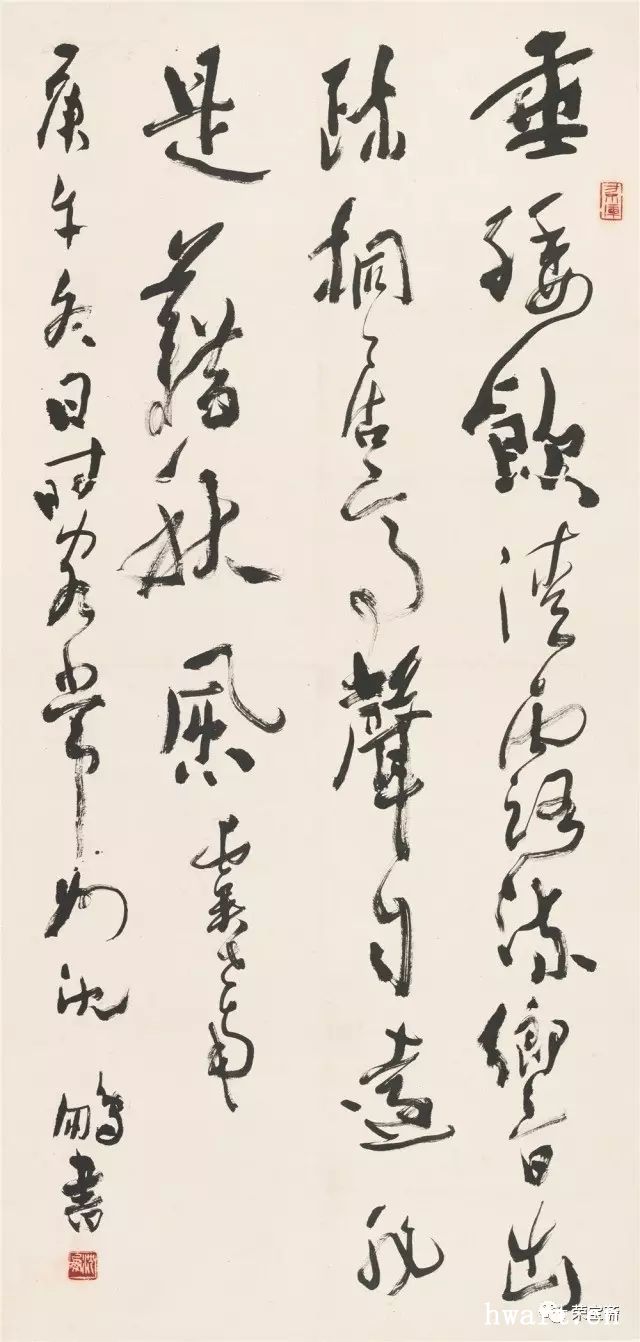 垂緌飲清露流響出
疎桐居高聲自遠非
是藉秋風 虞世南
庚午冬日時客常州沈鵬書
沈鵬
荣宝斋